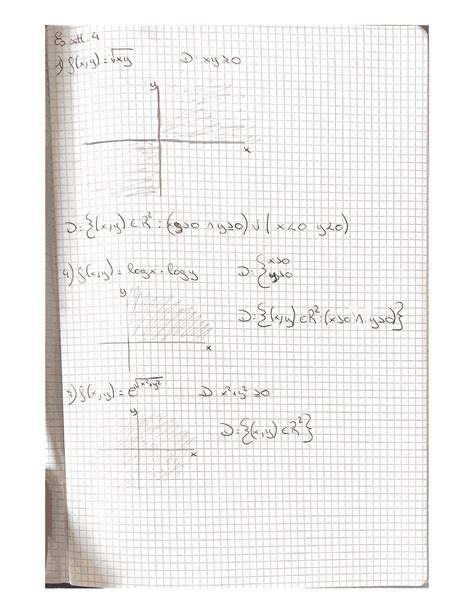 Es sett. 4
1) f(x,y) = √xy D: xy≥0
y
x
D: {(x,y) ∈ R² : (x≥0 ∧ y≥0) ∨ ( x≤0 y≤0)
4) f(x,y) = log x · log y D: { x>0
y>0
y
x
D: {(x,y) ∈ R² : (x>0 ∧ y>0)}
f(x,y) = e^√x²+y² D: x²+y² ≥0
y
x
D: {(x,y) ∈ R²}